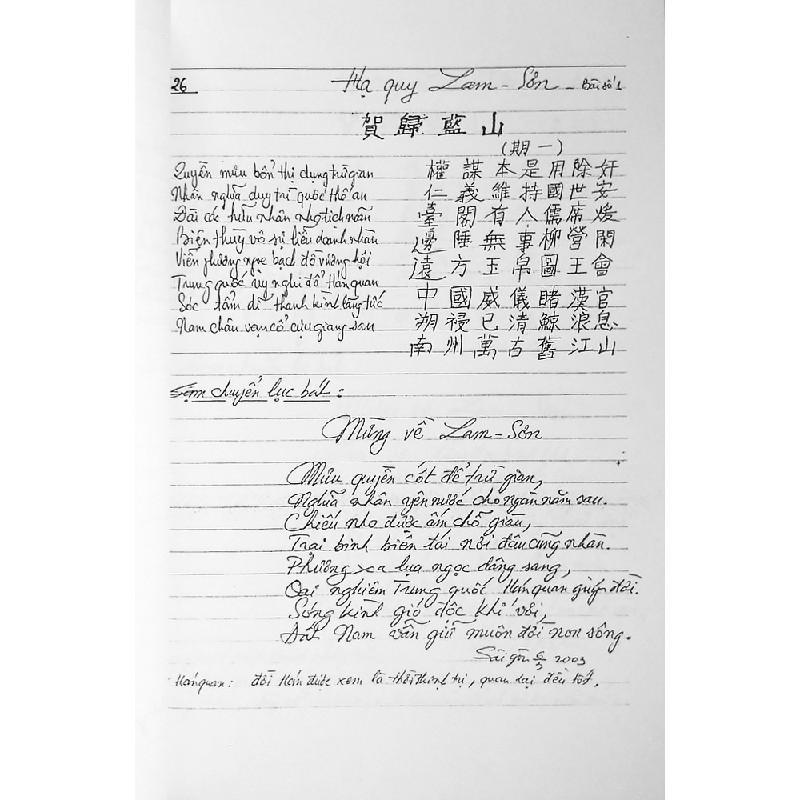 26
Hạ quy Lam-Sơn - Bài số 1
賀歸藍山
(期一)
Quyền mưu bổn thị dụng trừ gian 權謀本是用除奸
Nhân nghĩa duy trì quốc thế an 仁義維持國世安
Đài các hữu nhân nho tịch noãn 臺閣有人儒席煖
Biên thùy vô sự liễu doanh nhàn 邊陲無事柳營閑
Viễn phương ngọc bạch đồ vương hội 遠方玉帛圖王會
Trung quốc uy nghi đổ Hán quan 中國威儀睹漢官
Sóc tẩm dĩ thanh kình lãng tức 朔祲已清鯨浪息
Nam châu vạn cổ cựu giang san 南州萬古舊江山
Tạm chuyển lục bát:
Mừng về Lam-Sơn
Mưu quyền cốt để trừ gian,
Nghĩa nhân yên nước cho ngàn năm sau.
Chiếu nho được ấm chỗ giàu,
Trại binh biên tái nơi đâu cũng nhàn.
Phương xa lụa ngọc dâng sang,
Oai nghiêm Trung quốc Hán quan giúp đời.
Sóng kình gió độc khí vơi,
Đất Nam vẫn giữ muôn đời non sông.
Sài gòn 2003
Hán quan: đời Hán được xem là thời thịnh trị, quan lại đều tốt.